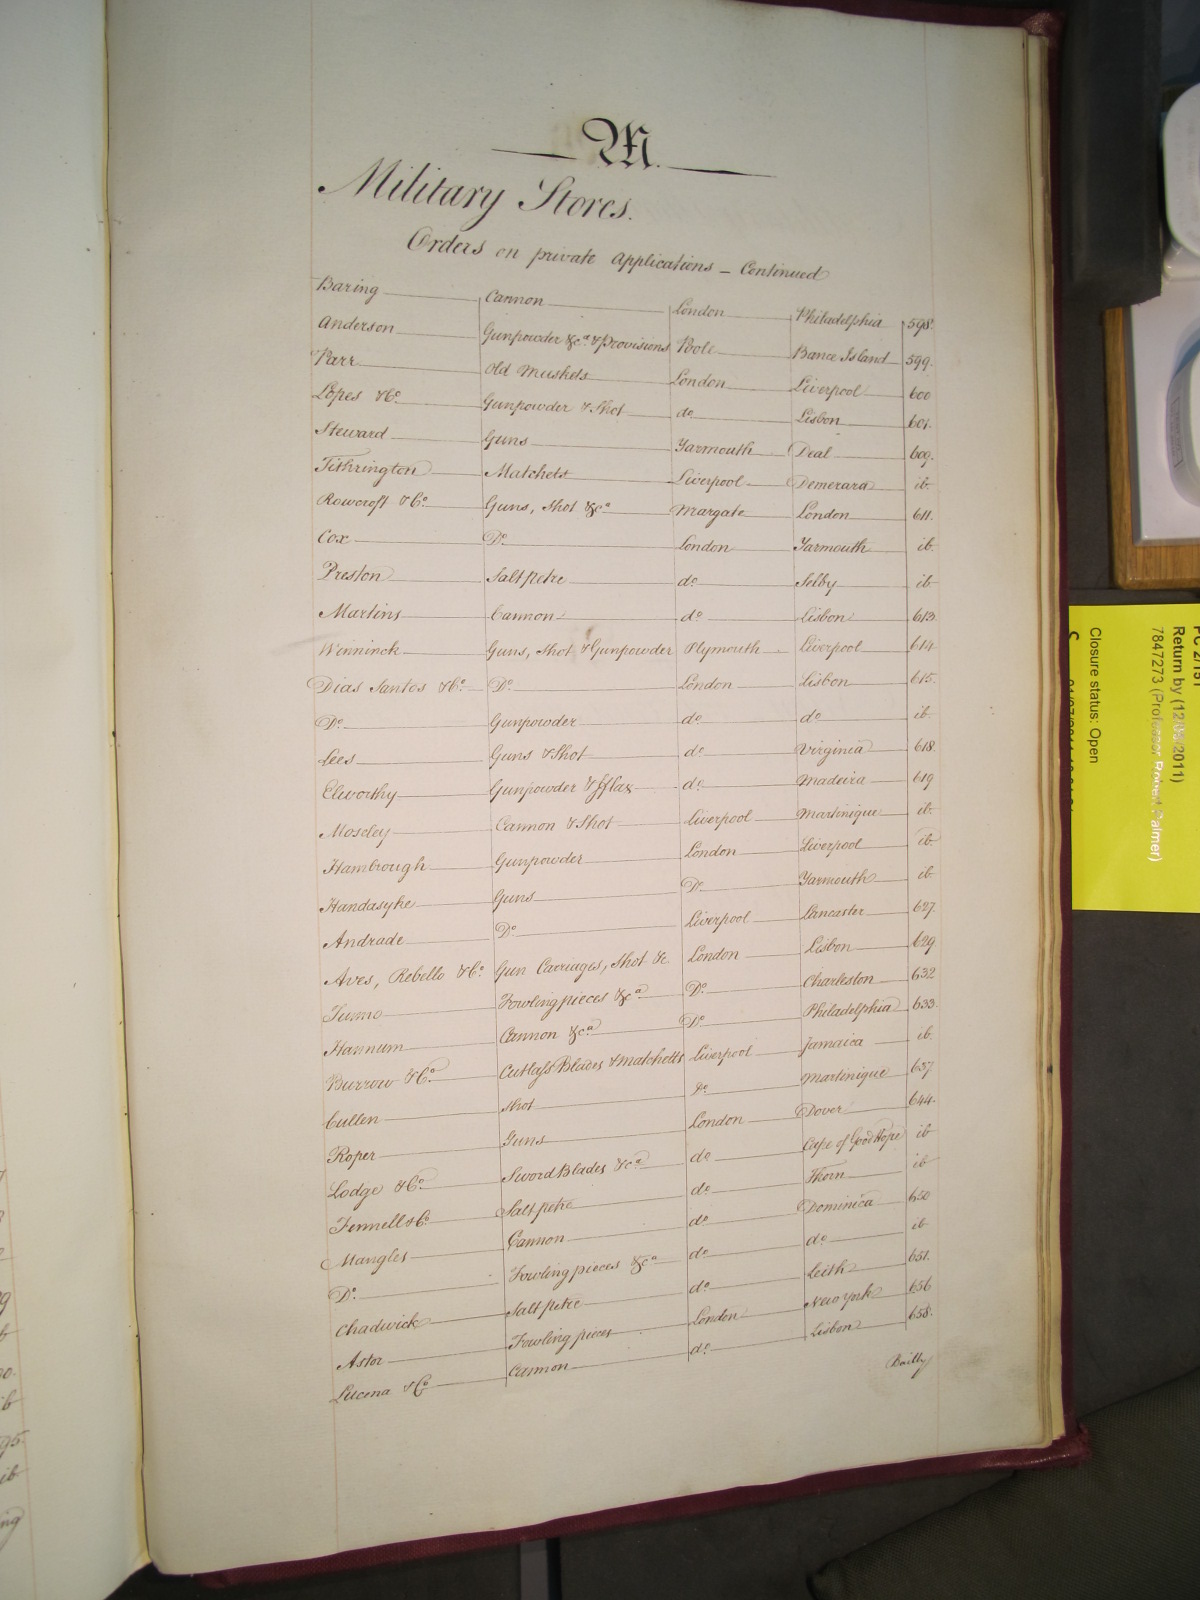 M.
Military Stores.
Orders on private Applications – Continued
Baring Cannon London Philadelphia 598
Anderson Gunpowder &ca & Provisions Poole Bance Island 599
Parr Old Muskets London Liverpool 600
Lopes & Co. Gunpowder & Shot do. Lisbon 601
Steward Guns Yarmouth Deal 609
Tithrington Matchets Liverpool Demerara ib.
Rowcroft & Co. Guns, Shot &ca Margate London 611.
Cox Do. London Yarmouth ib.
Preston Salt petre do. Selby ib
Martins Cannon do. Lisbon 613
Wenninck Guns, Shot & Gunpowder Plymouth Liverpool 614
Dias Santos & Co. Do. London Lisbon 615.
Do. Gunpowder do. do. ib.
Lees Guns & Shot do. Virginia 618.
Elworthy Gunpowder & fflax do. Madeira 619
Moseley Cannon & Shot Liverpool Martinique ib.
Hambrough Gunpowder London Liverpool ib.
Handasyke Guns Do. Yarmouth ib.
Andrade Do. Liverpool Lancaster 627.
Aves, Rebello & Co. Gun Carriages, Shot &c London Lisbon 629
Tunno Fowling pieces &ca Do. Charleston 632
Hannum Cannon &ca Do. Philadelphia 633.
Burrow & Co. Cutlass Blades & Matchetts Liverpool Jamaica ib.
Cullen Shot Do. Martinique 637
Roper Guns London Dover 644.
Lodge & Co. Sword Blades &ca do. Cape of Good Hope ib
Fennell & Co Salt petre do. Thorn ib
Mangles Cannon do. Dominica 650
Do. Fowling pieces &ca do. do. ib
Chadwick Salt petre do. Leith 651.
Astor Fowling pieces London New York 656
Lucena & Co Cannon do. Lisbon 658.
Bailly
Return by (12/05/2011)
7847273 (Professor Robert Palmer)
Closure status: Open